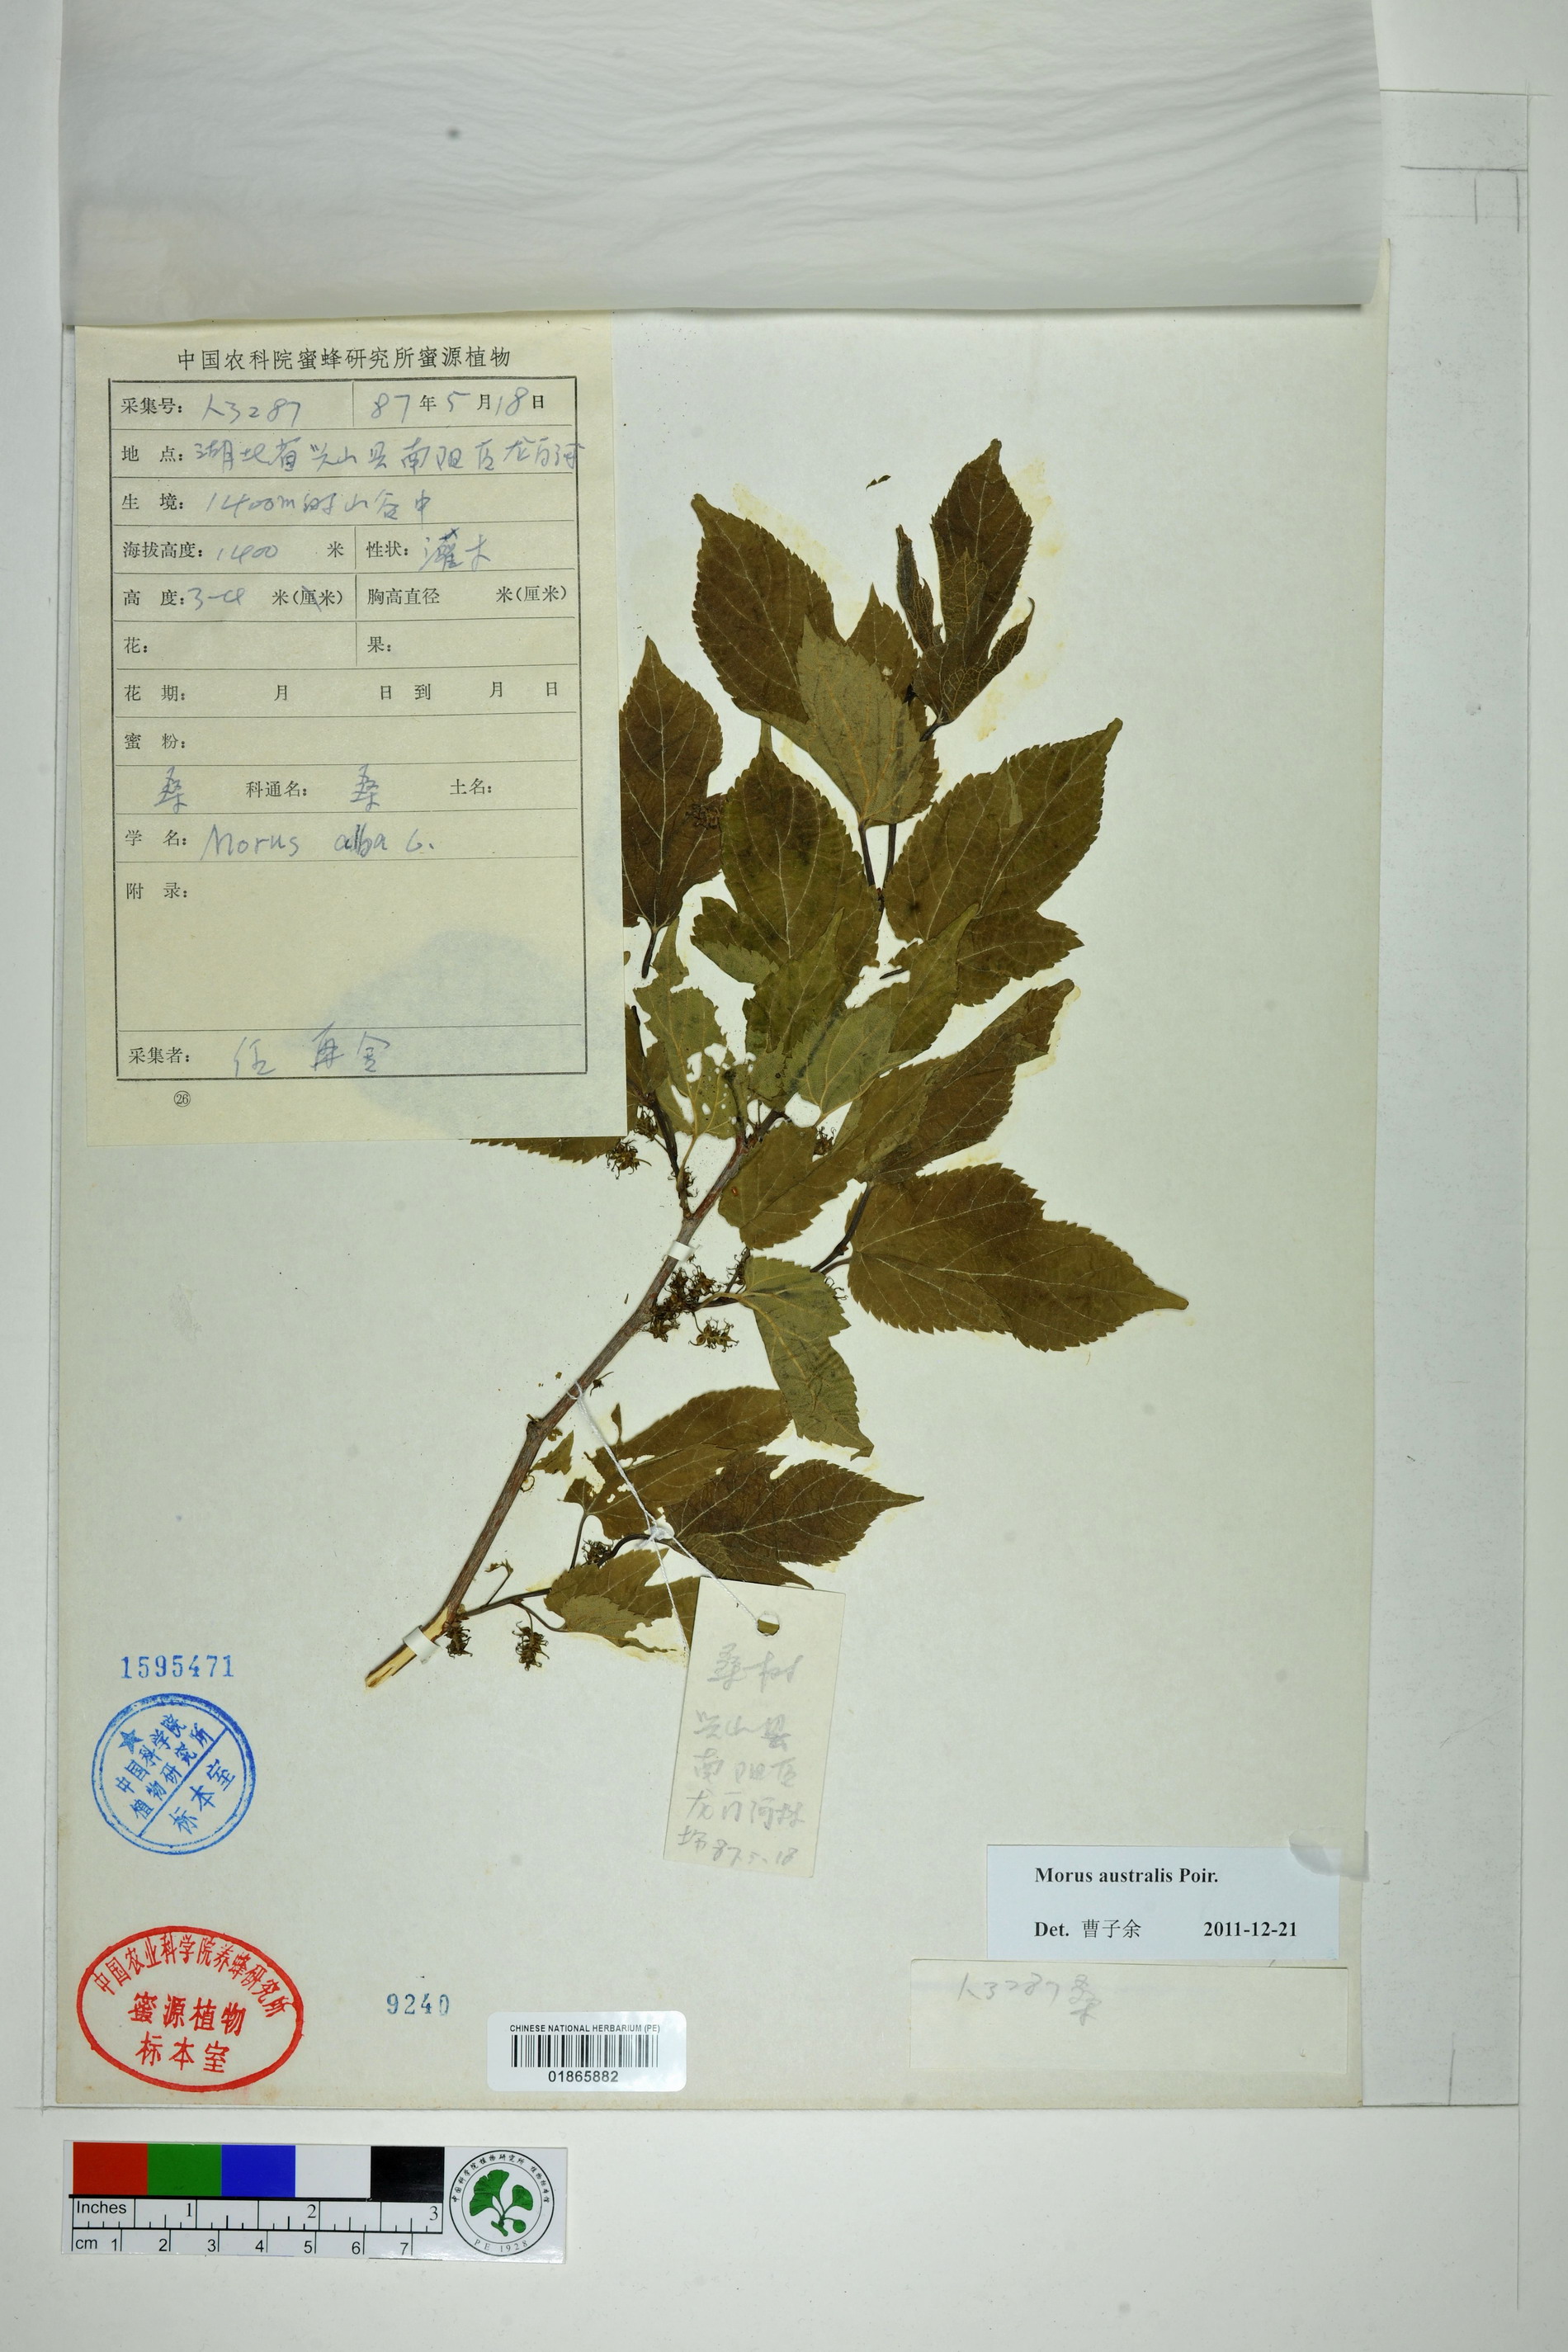 中国农科院蜜蜂研究所蜜源植物
采集号: 人3287 87年5月18日
地 点: 湖北省兴山县南阳区龙门河
生 境: 1400m的山谷中
海拔高度: 1400 米 性状: 灌木
高 度: 3-4 米(厘米) 胸高直径 米(厘米)
花: 果:
花 期: 月 日 到 月 日
蜜 粉:
桑 科通名: 桑 土名:
学 名: Morus alba L.
附 录:
采集者: 任再金
㉖
桑树
兴山县
南阳区
龙门河林
场87.5.18
1595471
中国科学院
植物研究所
标本室
中国农业科学院养蜂研究所
蜜源植物
标本室
9240
CHINESE NATIONAL HERBARIUM (PE)
01865882
Morus australis Poir.
Det. 曹子余 2011-12-21
人3287桑
Inches 1 2 3
cm 1 2 3 4 5 6 7
中国科学院植物研究所 植物标本馆
PE 1928